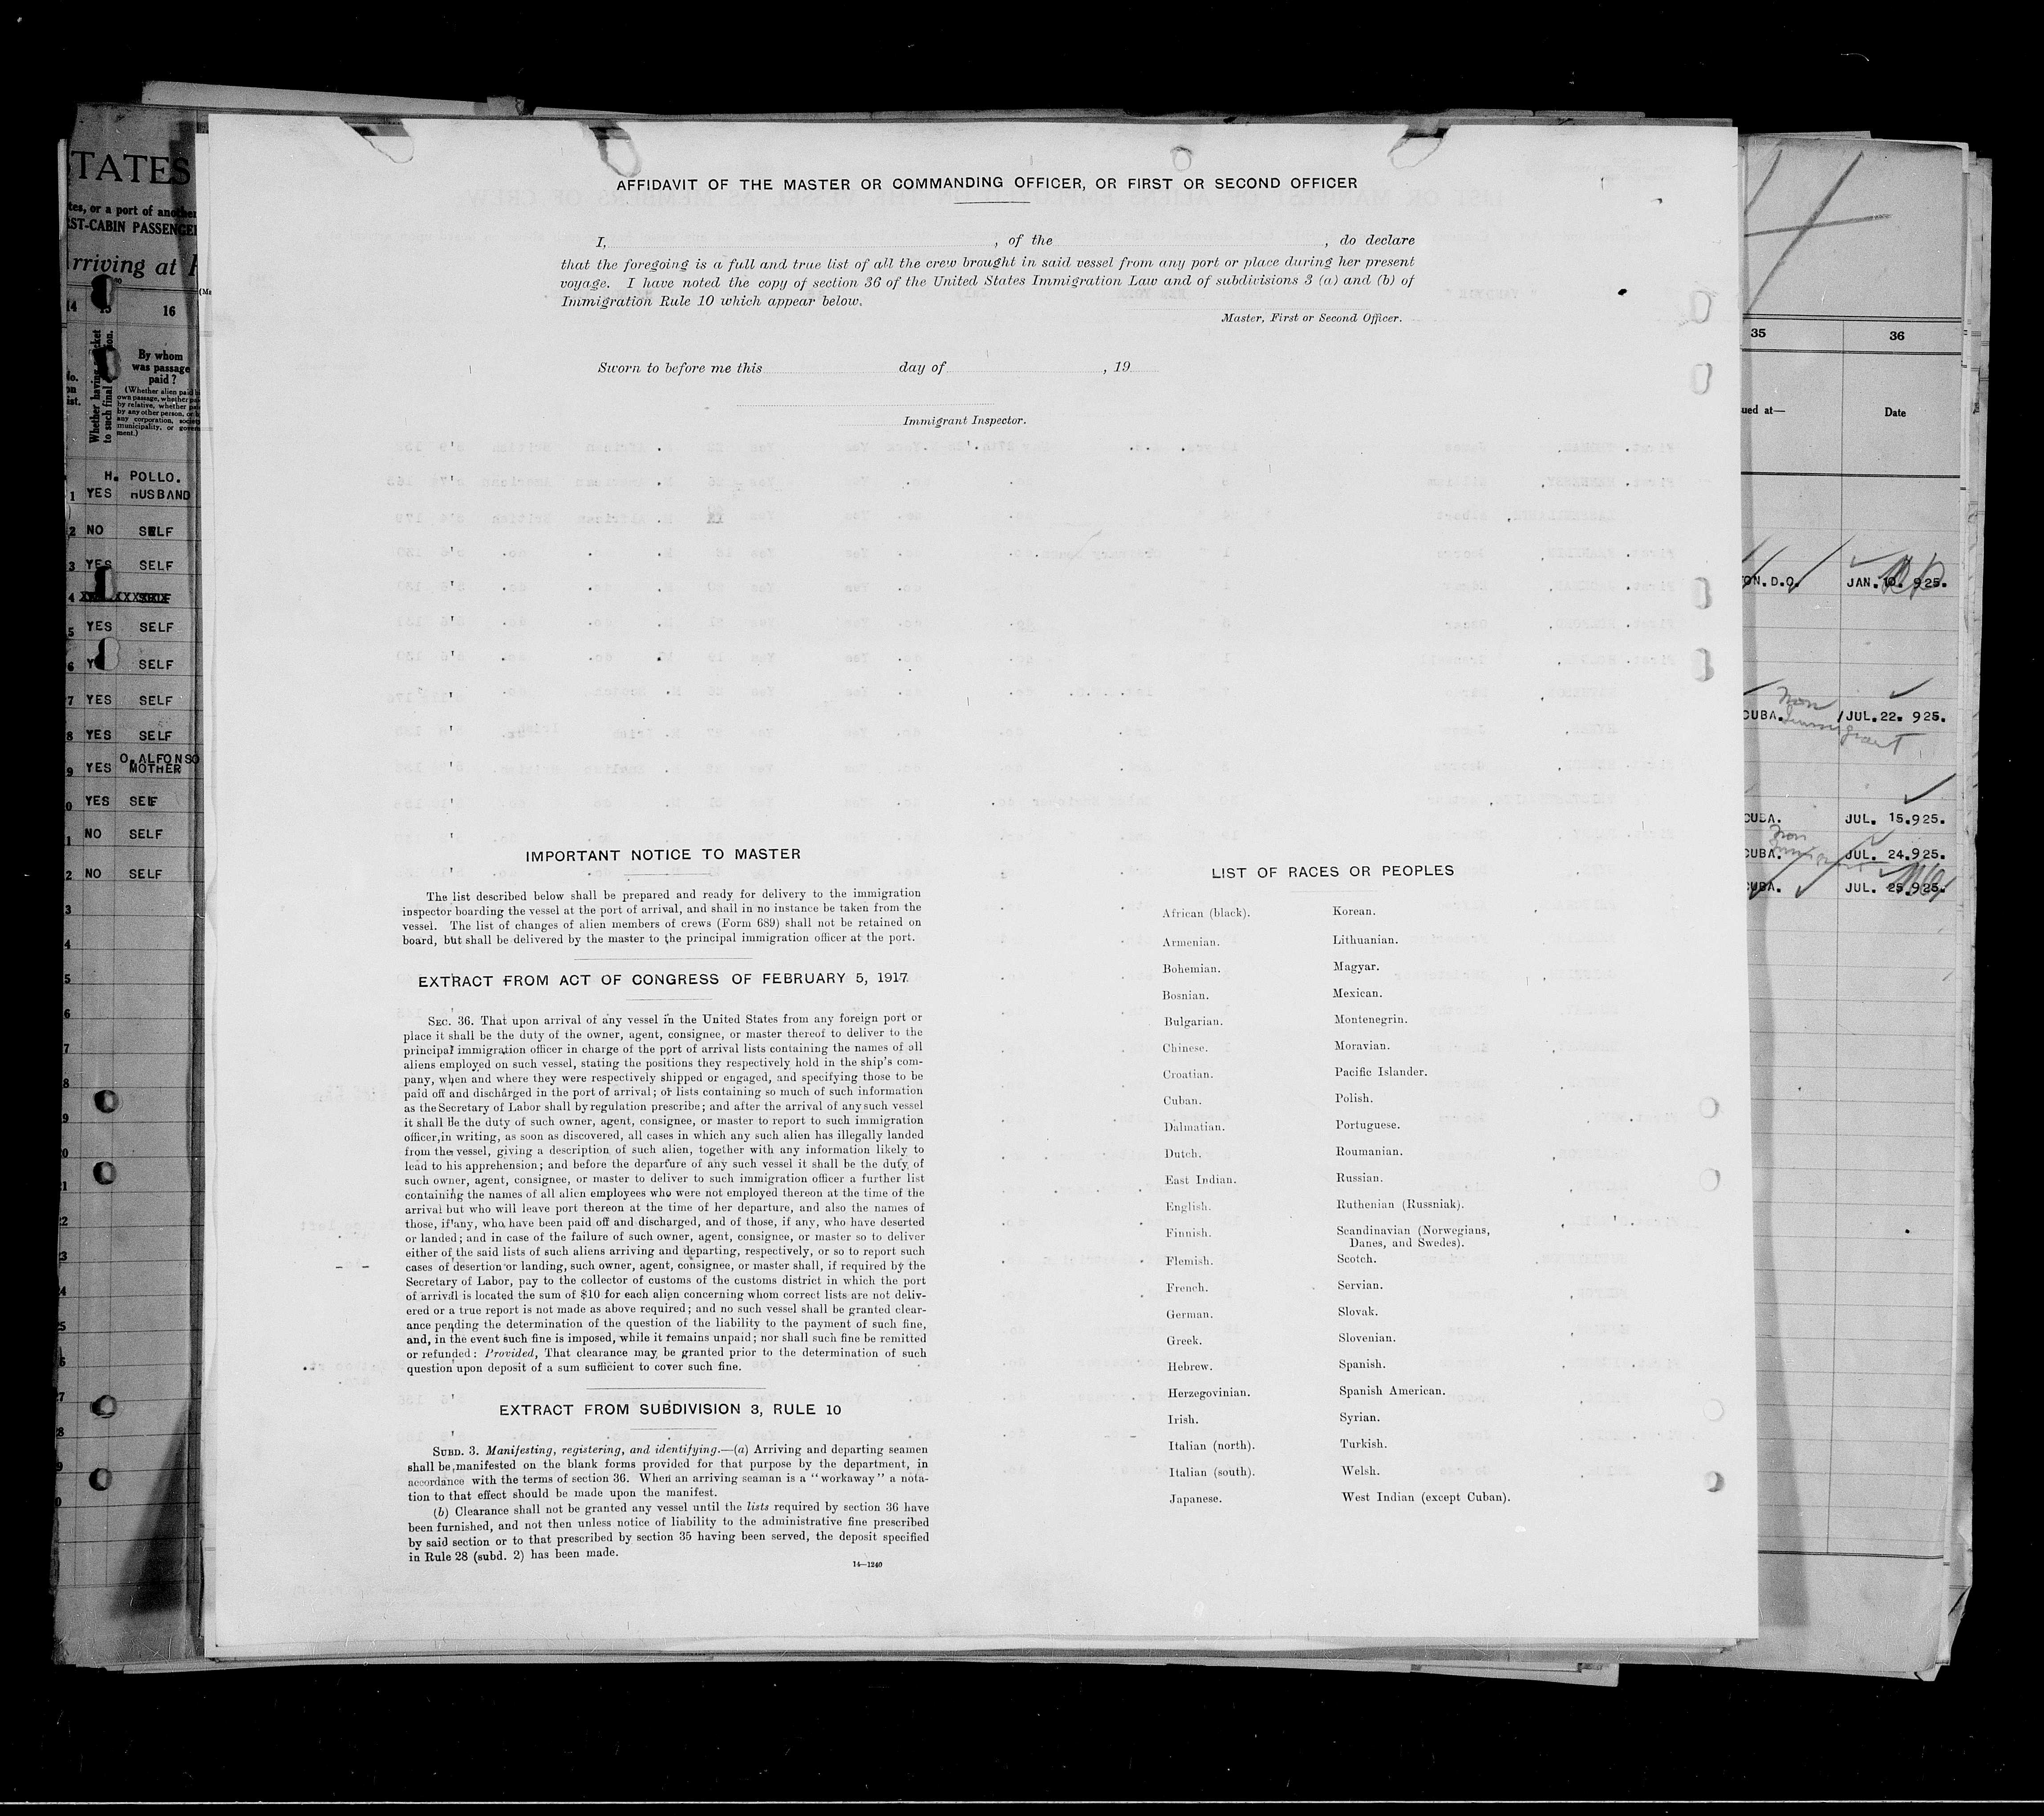 AFFIDAVIT OF THE MASTER OR COMMANDING OFFICER, OR FIRST OR SECOND OFFICER
I, , of the , do declare
that the foregoing is a full and true list of all the crew brought in said vessel from any port or place during her present
voyage. I have noted the copy of section 36 of the United States Immigration Law and of subdivisions 3 (a) and (b) of
Immigration Rule 10 which appear below.
Master, First or Second Officer.
Sworn to before me this day of , 19
Immigrant Inspector.
IMPORTANT NOTICE TO MASTER
The list described below shall be prepared and ready for delivery to the immigration
inspector boarding the vessel at the port of arrival, and shall in no instance be taken from the
vessel. The list of changes of alien members of crews (Form 689) shall not be retained on
board, but shall be delivered by the master to the principal immigration officer at the port.
EXTRACT FROM ACT OF CONGRESS OF FEBRUARY 5, 1917
SEC. 36. That upon arrival of any vessel in the United States from any foreign port or
place it shall be the duty of the owner, agent, consignee, or master thereof to deliver to the
principal immigration officer in charge of the port of arrival lists containing the names of all
aliens employed on such vessel, stating the positions they respectively hold in the ship's com-
pany, when and where they were respectively shipped or engaged, and specifying those to be
paid off and discharged in the port of arrival; or lists containing so much of such information
as the Secretary of Labor shall by regulation prescribe; and after the arrival of any such vessel
it shall be the duty of such owner, agent, consignee, or master to report to such immigration
officer, in writing, as soon as discovered, all cases in which any such alien has illegally landed
from the vessel, giving a description of such alien, together with any information likely to
lead to his apprehension; and before the departure of any such vessel it shall be the duty of
such owner, agent, consignee, or master to deliver to such immigration officer a further list
containing the names of all alien employees who were not employed thereon at the time of the
arrival but who will leave port thereon at the time of her departure, and also the names of
those, if any, who have been paid off and discharged, and of those, if any, who have deserted
or landed; and in case of the failure of such owner, agent, consignee, or master so to deliver
either of the said lists of such aliens arriving and departing, respectively, or so to report such
cases of desertion or landing, such owner, agent, consignee, or master shall, if required by the
Secretary of Labor, pay to the collector of customs of the customs district in which the port
of arrival is located the sum of $10 for each alien concerning whom correct lists are not deliv-
ered or a true report is not made as above required; and no such vessel shall be granted clear-
ance pending the determination of the question of the liability to the payment of such fine,
and, in the event such fine is imposed, while it remains unpaid; nor shall such fine be remitted
or refunded: Provided, That clearance may be granted prior to the determination of such
question upon deposit of a sum sufficient to cover such fine.
EXTRACT FROM SUBDIVISION 3, RULE 10
SUBD. 3. Manifesting, registering, and identifying.—(a) Arriving and departing seamen
shall be manifested on the blank forms provided for that purpose by the department, in
accordance with the terms of section 36. When an arriving seaman is a "workaway" a nota-
tion to that effect should be made upon the manifest.
(b) Clearance shall not be granted any vessel until the lists required by section 36 have
been furnished, and not then unless notice of liability to the administrative fine prescribed
by said section or to that prescribed by section 35 having been served, the deposit specified
in Rule 28 (subd. 2) has been made.
14—1240
LIST OF RACES OR PEOPLES
African (black). Korean.
Armenian. Lithuanian.
Bohemian. Magyar.
Bosnian. Mexican.
Bulgarian. Montenegrin.
Chinese. Moravian.
Croatian. Pacific Islander.
Cuban. Polish.
Dalmatian. Portuguese.
Dutch. Roumanian.
East Indian. Russian.
English. Ruthenian (Russniak).
Finnish. Scandinavian (Norwegians,
Danes, and Swedes).
Flemish. Scotch.
French. Servian.
German. Slovak.
Greek. Slovenian.
Hebrew. Spanish.
Herzegovinian. Spanish American.
Irish. Syrian.
Italian (north). Turkish.
Italian (south). Welsh.
Japanese. West Indian (except Cuban).
TATES
tes, or a port of another
ST-CABIN PASSENGE
rriving at
14 15 16
Whether having ticket
to such final
By whom
was passage
paid?
(Whether alien paid
own passage, whether
by relative, whether
by any other person, or
any corporation, society
municipality, or govern
ment.)
H. POLLO.
1 YES HUSBAND
2 NO SELF
3 YES SELF
4 SELF
5 YES SELF
6 SELF
7 YES SELF
8 YES SELF
O. ALFONSO
9 YES MOTHER
0 YES SELF
1 NO SELF
2 NO SELF
3
4
5
6
7
8
9
20
21
22
23
24
25
26
27
28
9
0
35 36
ued at— Date
TON. D.C. JAN. 10. 925.
Non
CUBA. JUL. 22. 925.
Immigrant
CUBA. JUL. 15. 925.
Non
CUBA. JUL. 24. 925.
CUBA. JUL. 25. 925.